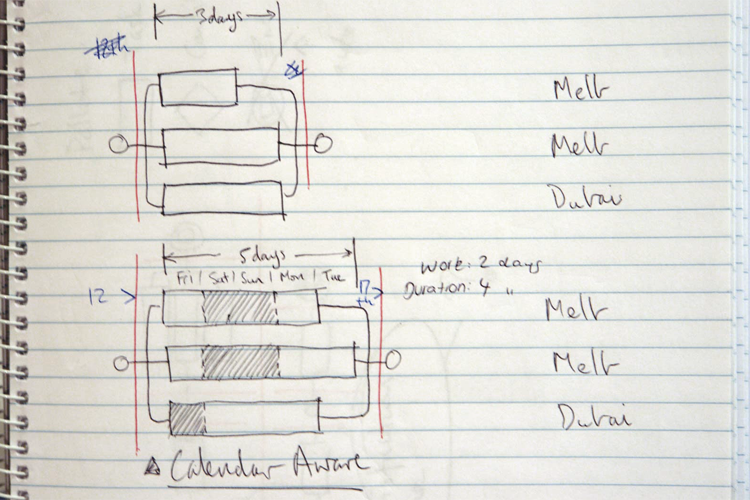 3days
Melb
Melb
Dubai
5days
Fri | Sat | Sun | Mon | Tue
Work: 2 days
12 >
17th >
Duration: 4 "
Melb
Melb
Dubai
Calendar Aware